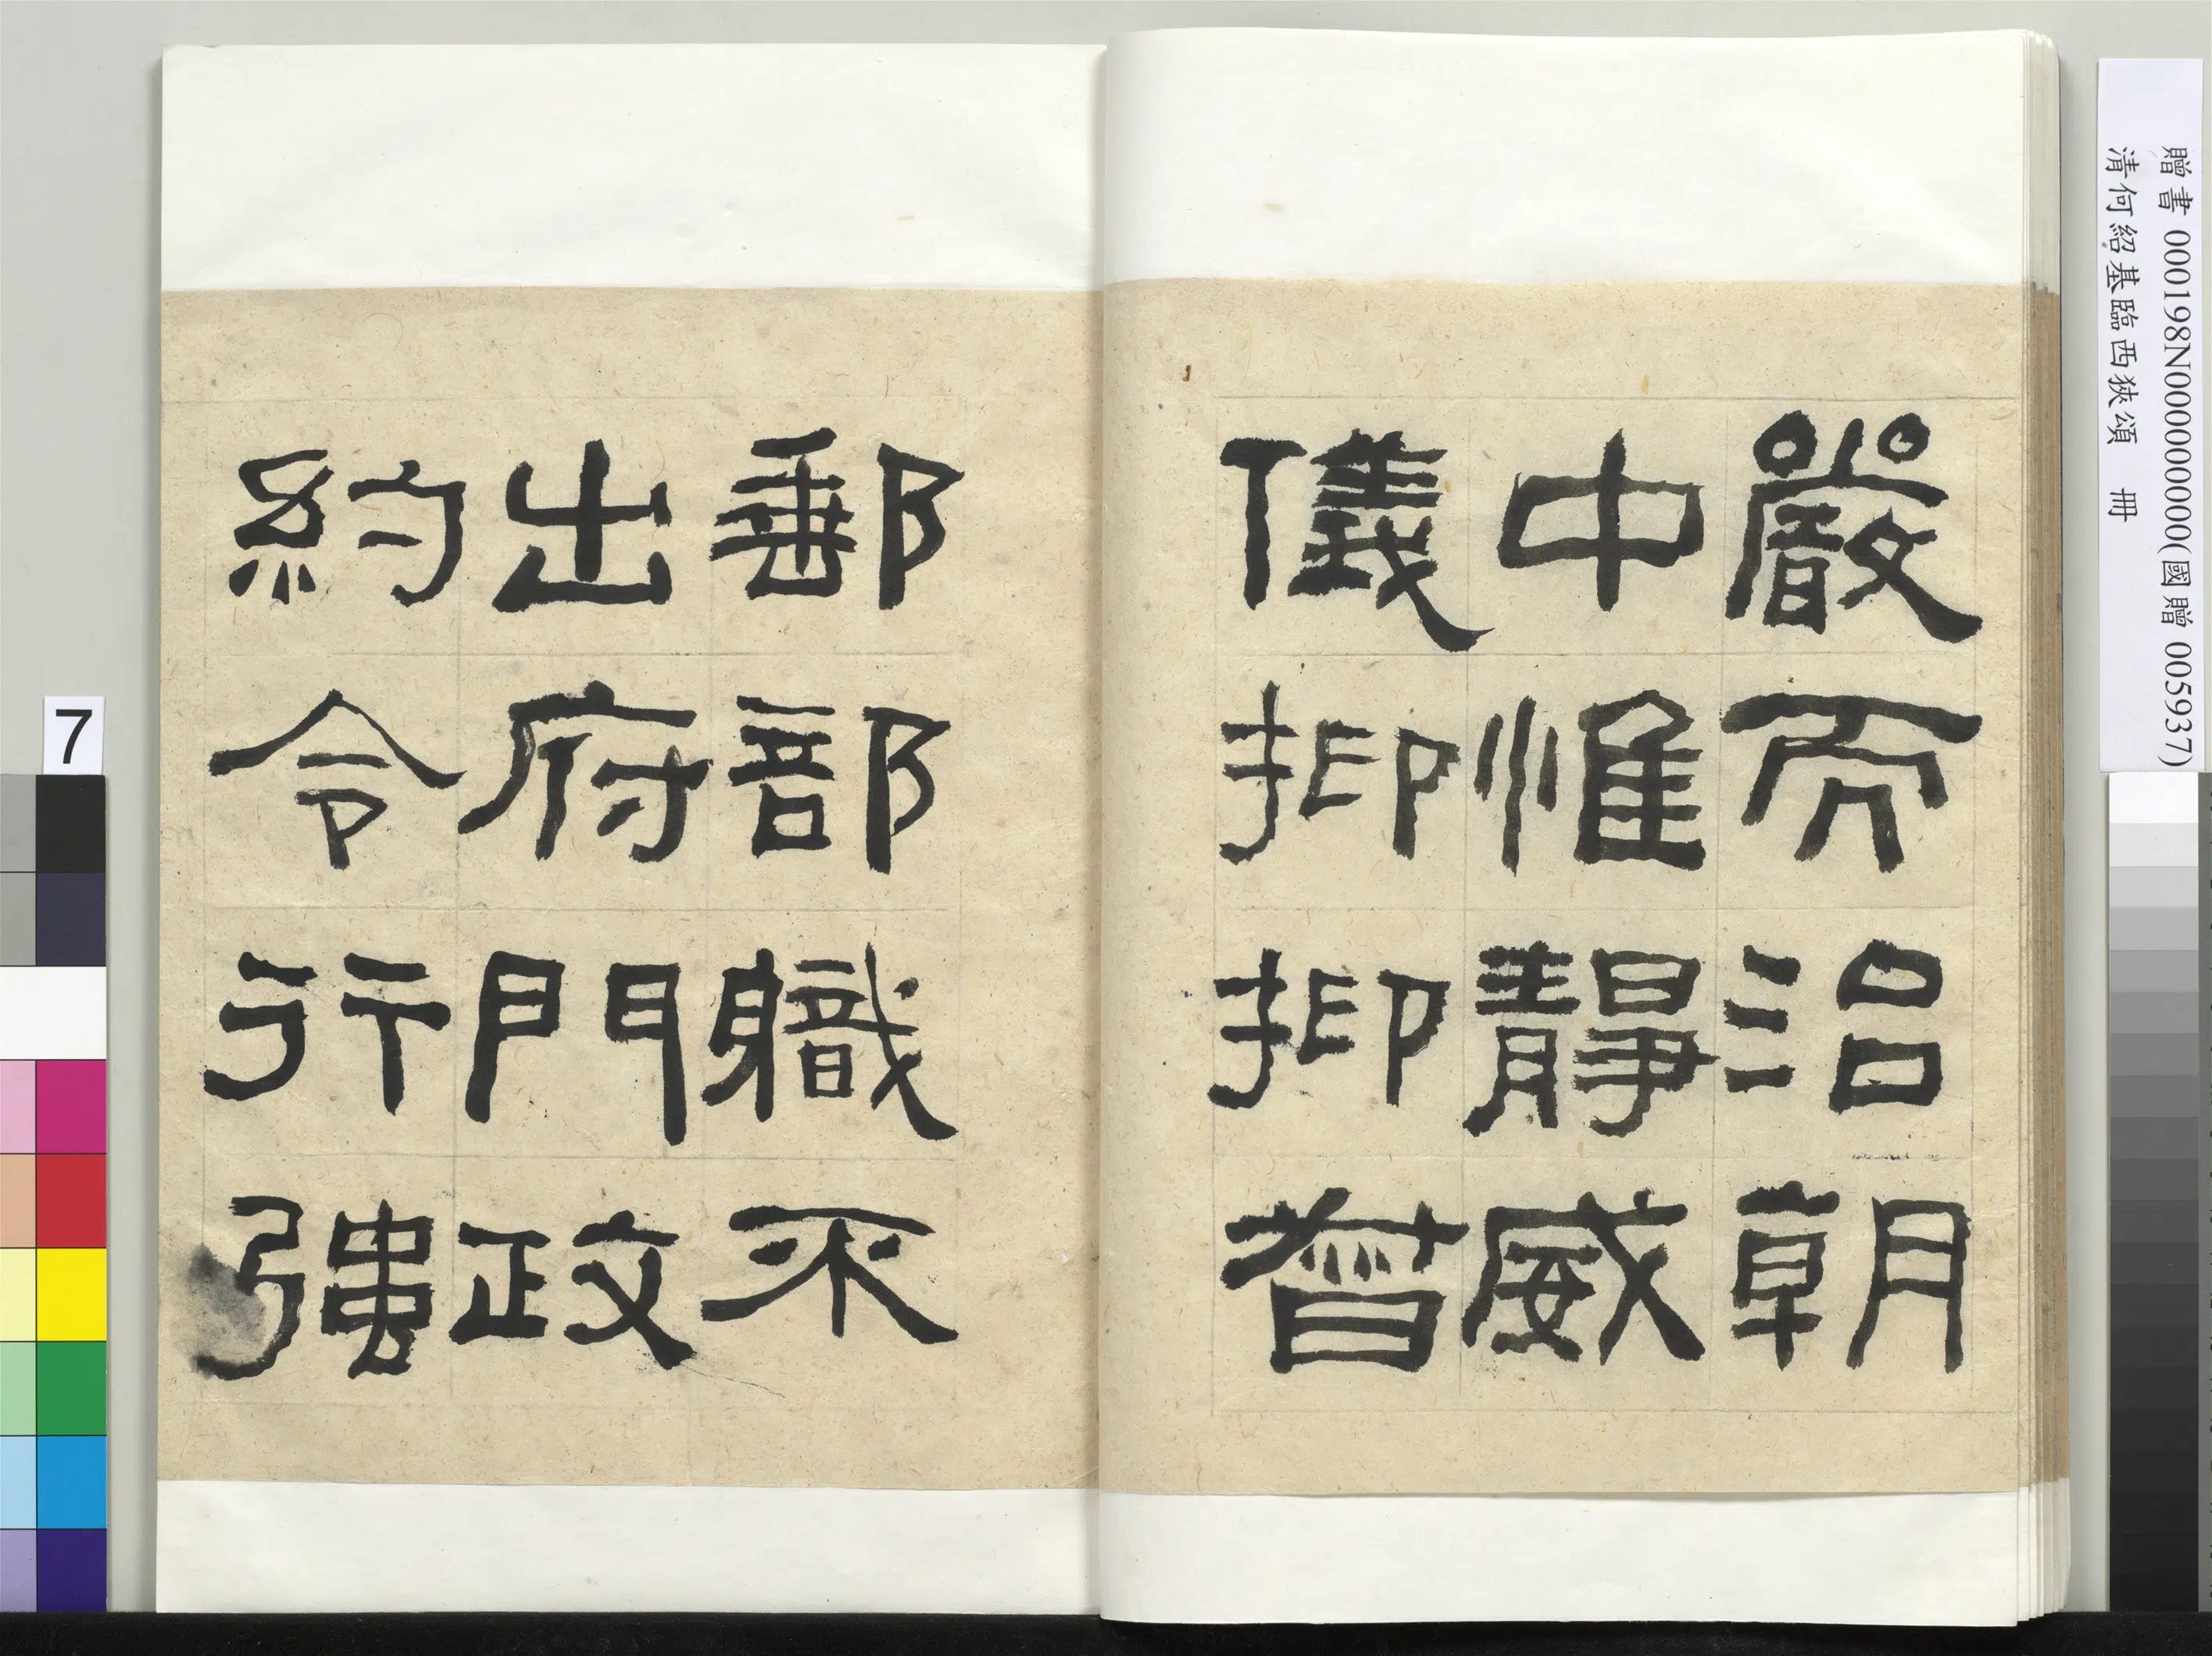 嚴而治朝
中惟靜威
儀抑抑督
郵部職不
出府門政
約令行強
7
贈書 000198N000000000(國贈 005937)
清何紹基臨西狹頌 冊